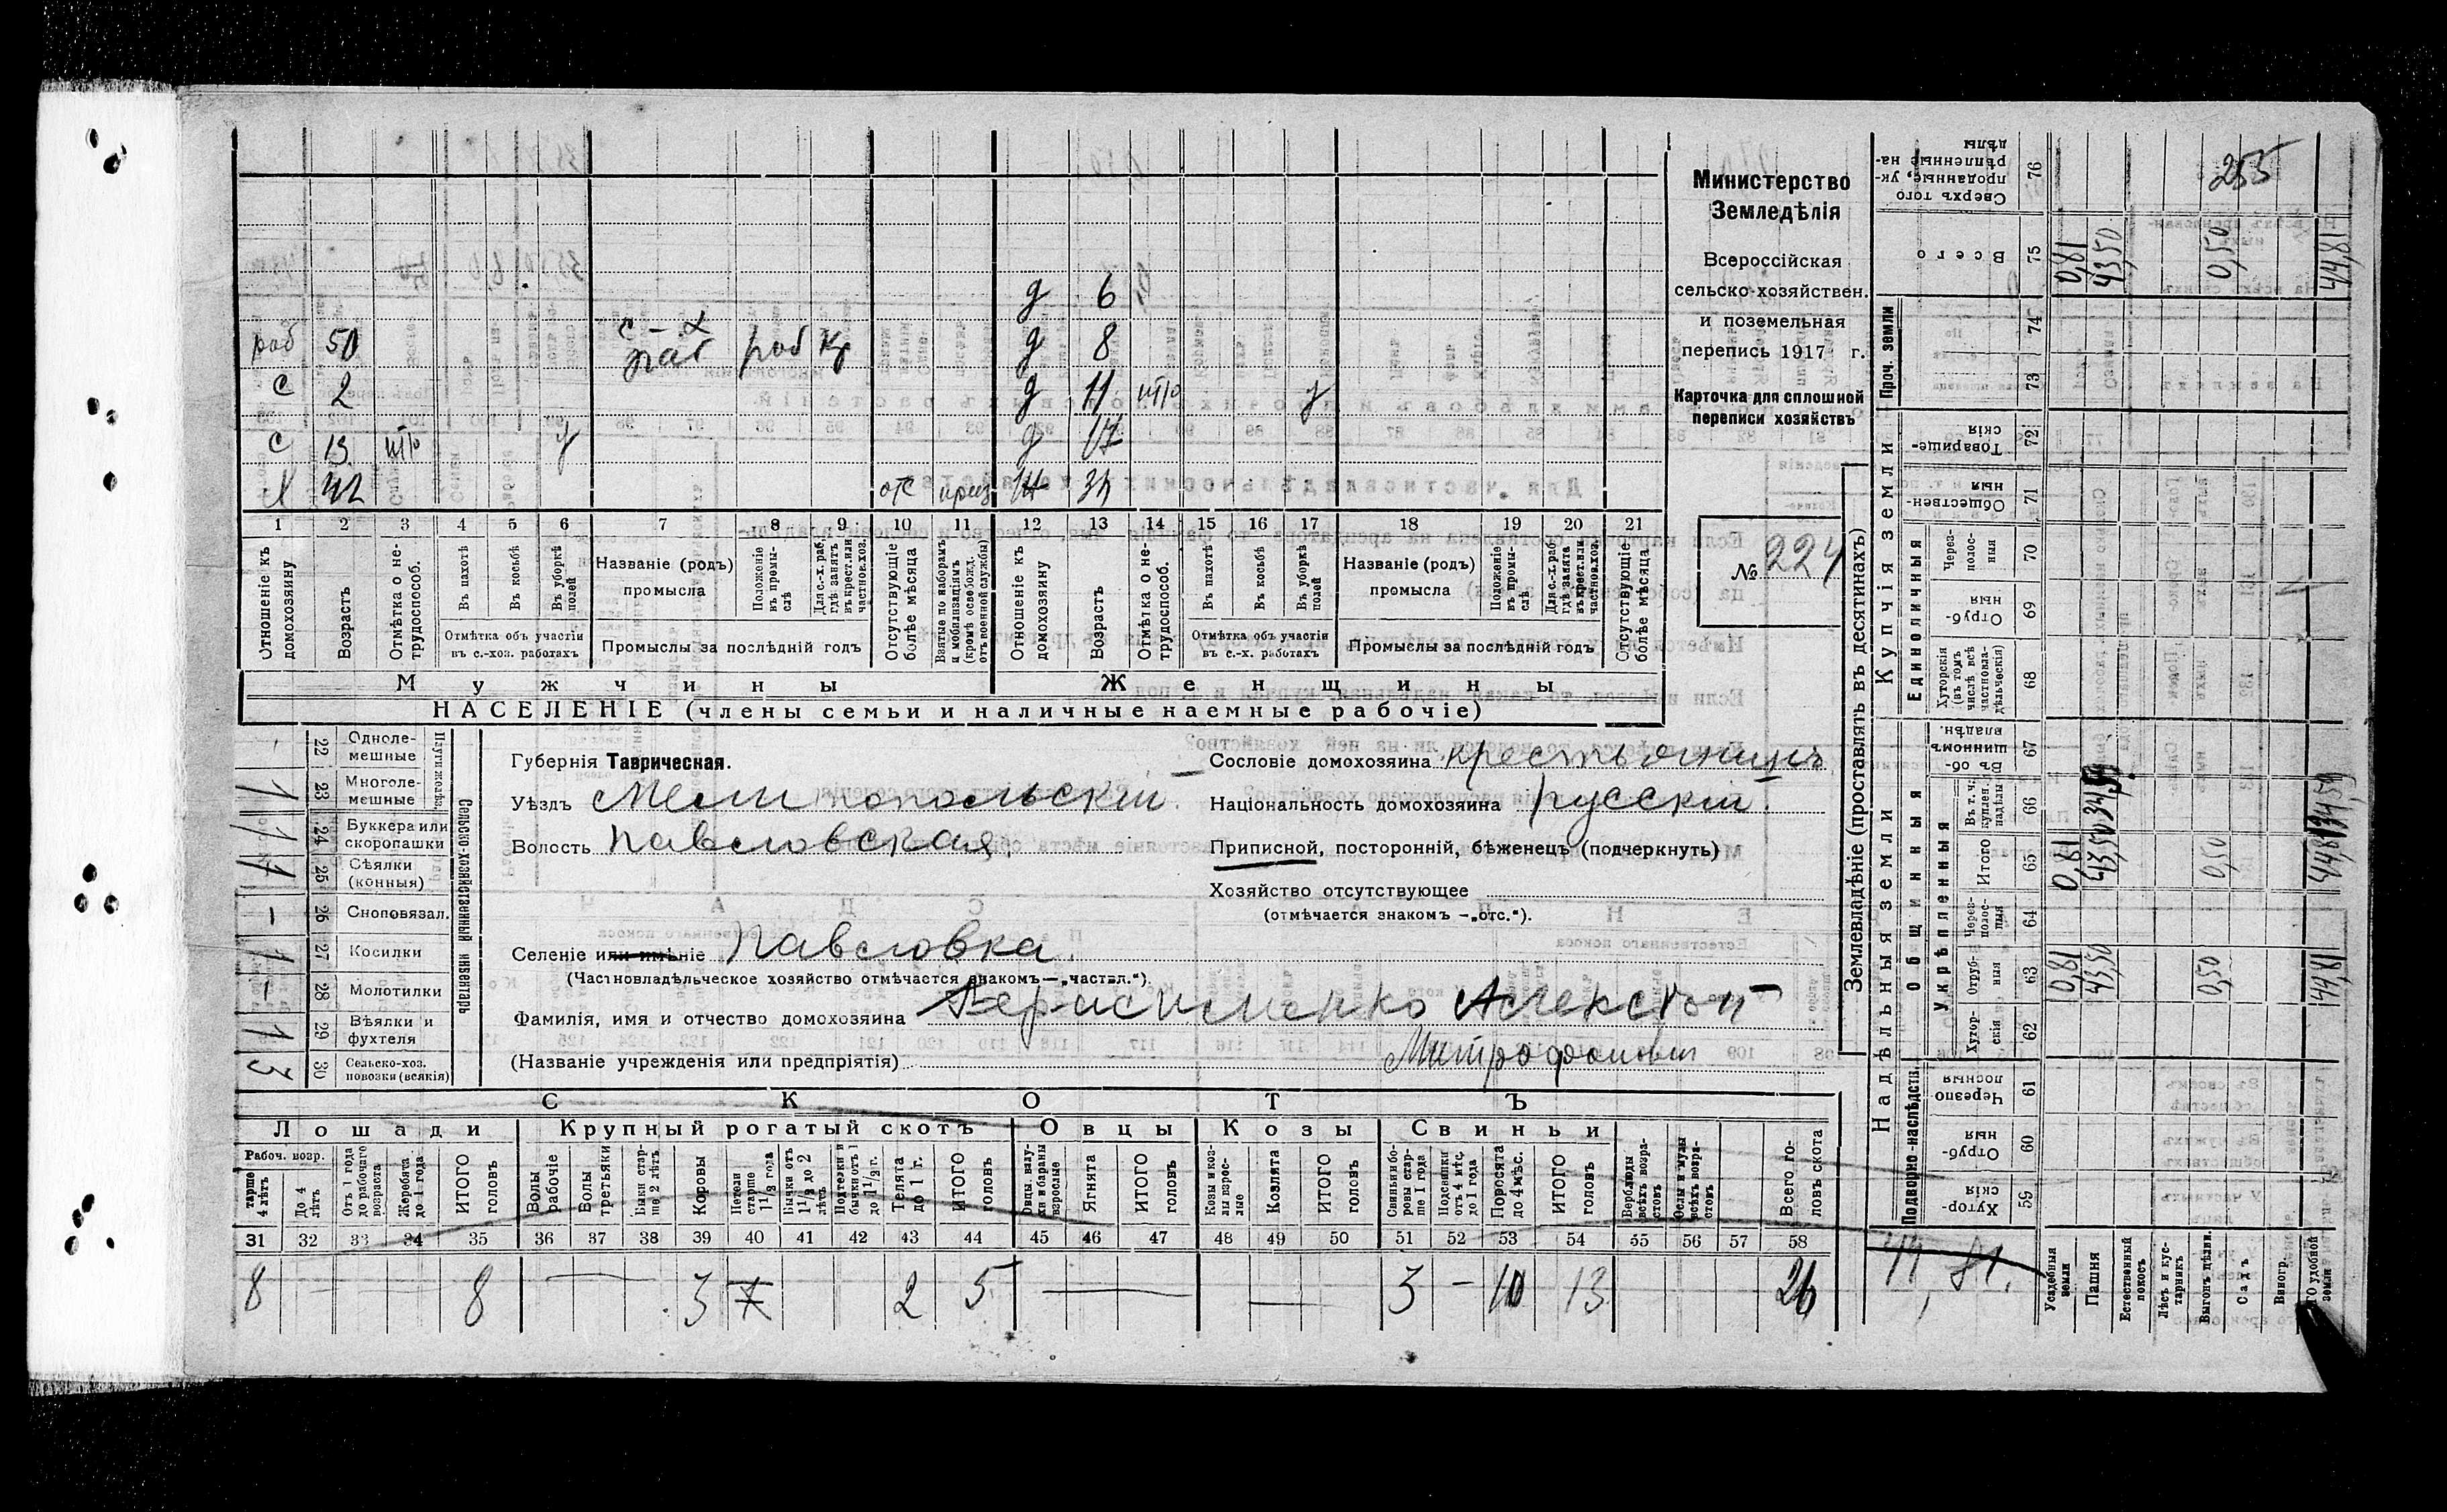 Министерство
Земледѣлія
Всероссійская
сельско-хозяйствен.
и поземельная
перепись 1917 г.
Карточка для сплошной
переписи хозяйствъ
№ 224
255
д 6
раб 50 с-х раб Кр д 8
с 2 д 11
с 13 д 17
Х 42 отс 34
1 2 3 4 5 6 7 8 9 10 11 12 13 14 15 16 17 18 19 20 21
Отношеніе къ домохозяину
Возрастъ
Отмѣтка о не-трудоспособ.
Въ пахотѣ
Въ косьбѣ
Въ уборкѣ полей
Отмѣтка объ участіи въ с.-хоз. работахъ
Названіе (родъ) промысла
Положеніе въ промы-слѣ
Для с.-х. раб. гдѣ занятъ въ крест. или частнов. хоз.
Промыслы за послѣдній годъ
Отсутствующіе болѣе мѣсяца
Взятые по наборамъ и мобилизаціямъ (кромѣ освобожд. отъ военной службы)
Отношеніе къ домохозяину
Возрастъ
Отмѣтка о не-трудоспособ.
Въ пахотѣ
Въ косьбѣ
Въ уборкѣ полей
Отмѣтка объ участіи въ с.-х. работахъ
Названіе (родъ) промысла
Положеніе въ промы-слѣ
Для с.-х. раб. гдѣ занята въ крест. или частнов. хоз.
Промыслы за послѣдній годъ
Отсутствующіе болѣе мѣсяца
Мужчины
Женщины
НАСЕЛЕНІЕ (члены семьи и наличные наемные рабочіе)
Сельско-хозяйственный инвентарь
22 Одноле-мешные
23 Многоле-мешные 1
24 Буккера или скоропашки 1
25 Сѣялки (конныя) 1
26 Сноповязал. —
27 Косилки 1
28 Молотилки —
29 Вѣялки и фухтеля 1
30 Сельско-хоз. повозки (всякія) 3
Губернія Таврическая.
Уѣздъ Мелитопольскій
Волость Павловская.
Сословіе домохозяина крестьянинъ
Національность домохозяина русскій.
Приписной, посторонній, бѣженецъ (подчеркнуть)
Хозяйство отсутствующее
(отмѣчается знакомъ —„отс.“).
Селеніе или имѣніе Павловка.
(Частновладѣльческое хозяйство отмѣчается знакомъ—„частвл.“).
Фамилія, имя и отчество домохозяина Герасименко Алексѣй
(Названіе учрежденія или предпріятія) Митрофанович
СКОТЪ
Лошади Крупный рогатый скотъ Овцы Козы Свиньи
Рабоч. возр.
Старше 4 лѣтъ
До 4 лѣтъ
Отъ 1 года до рабочаго возраста
Жеребята до 1 года
ИТОГО головъ
Волы рабочіе
Волы третьяки
Быки стар-ше 2 лѣтъ
Коровы
Нетели старше 1 1/2 года
Бычки отъ 1 1/2 до 2 лѣтъ
Подтелки и бычки отъ 1 до 1 1/2 г.
Телята до 1 г.
ИТОГО головъ
Овцы, валу-хи и бараны взрослые
Ягнята
ИТОГО головъ
Козы и коз-лы взрос-лые
Козлята
ИТОГО головъ
Свиньи и бо-ровы стар-ше 1 года
Подсвинки отъ 4 мѣс. до 1 года
Поросята до 4 мѣс.
ИТОГО головъ
Верблюды всѣхъ возра-стовъ
Ослы и мулы всѣхъ возра-стовъ
Всего го-ловъ скота
31 32 33 34 35 36 37 38 39 40 41 42 43 44 45 46 47 48 49 50 51 52 53 54 55 56 57 58
8 8 — 3 2 5 — — 3 — 10 13 26
Землевладѣніе (проставлять въ десятинахъ)
Надѣльныя земли
Купчія земли
Проч. земли
Подворно-наслѣдств.
Общинныя
Укрѣпленныя
Единоличныя
59 Хутор-скія
60 Отруб-ныя
61 Черезпо-лосныя
62 Хутор-скія
63 Отруб-ныя
64 Через-полос-ныя
65 Итого
66 Въ т. ч. куплен. надѣлы
67 Въ об-щинномъ владѣн.
68 Хуторскія (въ томъ числѣ всѣ частновла-дѣльческія)
69 Отруб-ныя
70 Через-полос-ныя
71 Обществен-ныя
72 Товарище-скія
73
74
75 Всего
76 Сверхъ того проданные, ук-рѣпленные на-дѣлы
Усадебныя земли 0,81 0,81 0,81
Пашня 43,50 43,50 34,59 43,50
Естественный покосъ
Лѣсъ и кус-тарникъ
Выгонъ цѣлин. 0,50 0,50 0,50
Садъ
Виногр.
ИТОГО удобной земли 44,81 44,81 34,59 44,81
44,81.